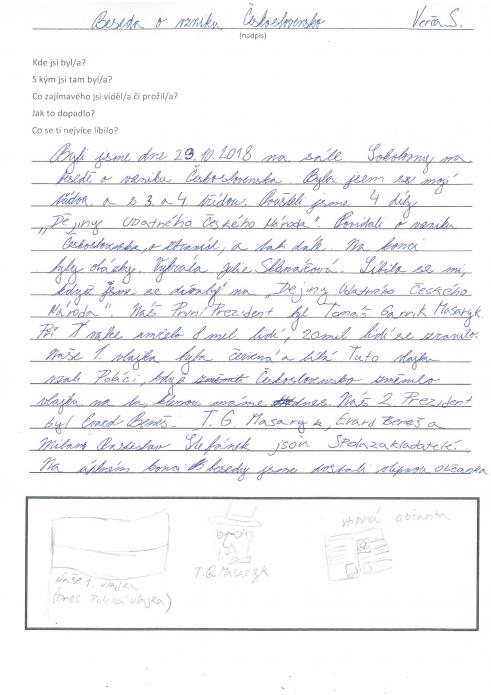 Beseda o vzniku Československa Verča S.
(nadpis)
Kde jsi byl/a?
S kým jsi tam byl/a?
Co zajímavého jsi viděl/a či prožil/a?
Jak to dopadlo?
Co se ti nejvíce líbilo?
Byli jsme dne 29.10.2018 na sále Sokolovny na
besedě o vzniku Československa. Byla jsem se mojí
třídou a s 3 a 4 třídou. Pouštěli jsme 4 díly
„Dějiny Udatného Českého Národa". Povídali o vzniku
Československa, o stranách, a tak dále. Na konci
byly otázky. Vyhrála Julie. Líbilo se mi,
když jsme se dívali na „Dějiny Udatného Českého
Národa". Náš První Prezident byl Tomáš Garrik Masaryk.
Při 1 válce umřelo 8 mil. lidí, 20 mil lidí se zranilo.
Naše 1. vlajka byla červená a bílá Tuto vlajku
vzali Poláci, když Československo změnilo
vlajku na tu, kterou máme dnes. Náš 2 Prezident
byl Beneš. T. G. Masaryk, Beneš a
Milan Štefánek jsou Spoluzakladatelé.
Na úplném konci besedy jsme dostali vtipnou občanku
Naše 1. vlajka
(Dnes Polská vlajka)
T.G. Masaryk
vtipná občanka